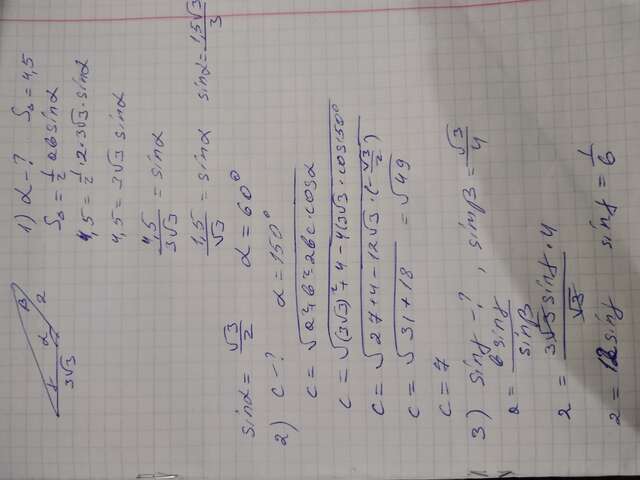 β
α
γ
2
3√3
1) α-? S△ = 4,5
S△ = 1/2 ab sinα
4,5 = 1/2 · 2 · 3√3 · sinα
4,5 = 3√3 sinα
4,5/3√3 = sinα
1,5/√3 = sinα sinα = 1,5√3/3
sinα = √3/2 α = 60°
2) c-? α = 150°
c = √a²+b²-2bc·cosα
c = √(3√3)²+4-4(3√3·cos150°
c = √27+4-12√3·(-√3/2)
c = √31+18 = √49
c = 7
3) sinγ-?, sinβ = √3/4
a = b sinγ/sinβ
2 = 3√3 sinγ·4/√3
2 = 12 sinγ sinγ = 1/6